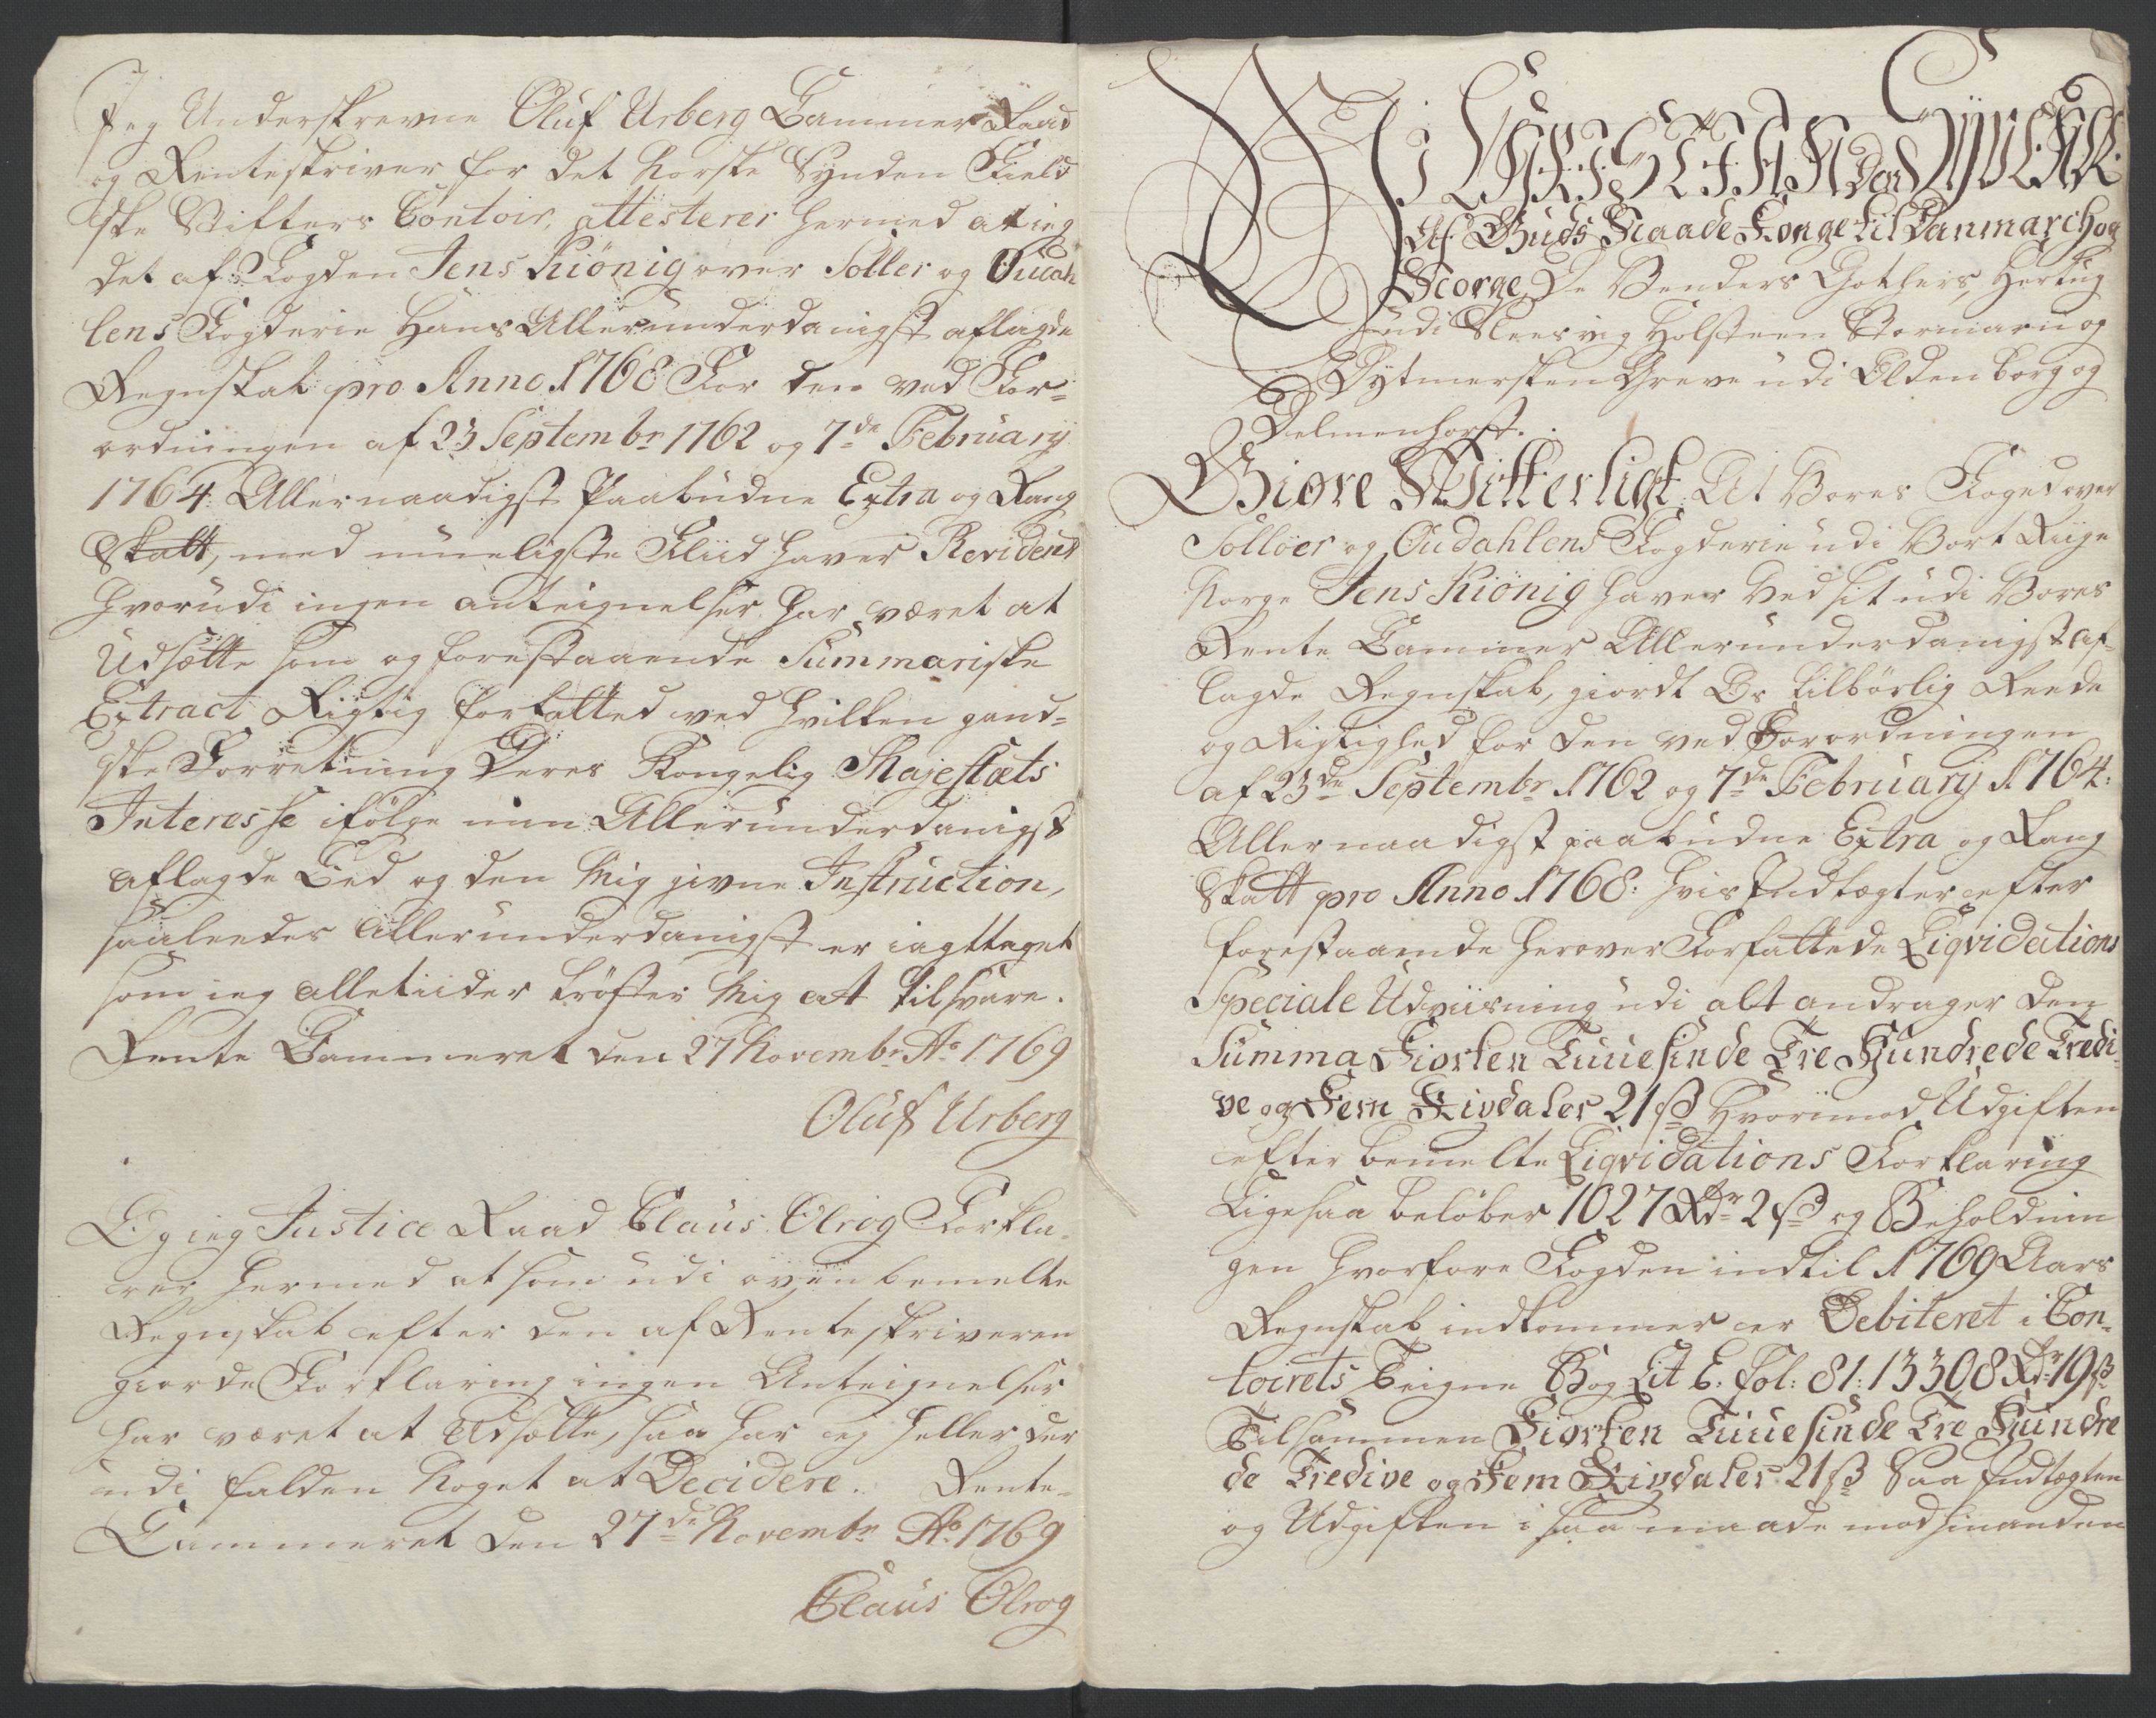 Jeg Underskrevne Oluf Urberg Cammer Raad
og Renteskriver for det Norske Synden Field
ske Stifters Contoir, attesterer hermed at ieg
det af Fogden Jens Kiönig over Soller og Oudah
lens Fogderie Hans Allerunderdanigst aflagde
Regnskab pro Anno 1768 For den ved For-
ordningen af 23 Septembr 1762 og 7de February
1764 Allernaadigst Paabudne Extra og Rang
Skatt, med mueligste Fliid haver Revideret
hvorudi ingen anteignelser har været at
Udsætte som og forestaaende Summariske
Extract Rigtig forfatted ved hvilken gand-
ske Forretning Deres Kongelig Majestæts
Interesse ifölge min Allerunderdanigst
aflagde Eed og den Mig givne Instruction,
saaleedes allerunderdanigst er iagttaget
som ieg alletiider tröster Mig at tilsvare.
Rente Cammeret den 27 Novembr Ao 1769
Oluf Urberg
Og ieg Justice Raad Claus Olrog Forkla-
rer hermed at som udi ovenbemelte
Regnskab efter den af Renteskriveren
giorde Forklaring ingen Anteignelser
har været at Udsætte, saa har ieg heller der
udi falden Noget at Decidere. Rente-
Cammeret den 27de Novembr Ao 1769
Claus Olrog
Wi CHRISTIAN den SYVENDE
Af Guds Naade Konge til Danmarch og
Norge, De Venders Gothers, Hertug
udi Slesvig Holsteen Stormarn og
Dytmersken Greve udi Oldenborg og
Delmenhorst.
Giøre Witterligt, At Vores Foged over
Solloer og Oudahlens Fogderie udi Vort Riige
Norge Jens Kiönig haver Ved sit udi Vores
Rente Cammer Allerunderdanigst af-
lagde Regnskab, giordt Os tilbörlig Reede
og Rigtighed for den ved Forordningen
af 23de Septembr 1762 og 7de February 1764:
Allernaadigst paabudne Extra og Rang
Skatt pro Anno 1768: hvis Indtægter efter
forestaaende herover Forfattede Liqvidations
Speciale Udviisning udi alt andrager den
Summa Fiorten Tuusinde Tre Hundrede Tredi-
ve og Fem Rixdaler 21 ß Hvorimod Udgiften
efter bemelte Liqvidations Forklaring
Ligesaa beløber 1027 Rdr 2 ß og Beholdnin
gen hvorfore Fogden indtil 1769 Aars
Regnskab indkommer er Debiteret i Con-
toirets Teigne Bog Lit E. fol: 81: 13308 Rdr 19 ß
Tilsammen Fiorten Tuusinde Tre Hundre
de Tredive og Fem Rixdaler 21 ß Saa Indtægten
og Udgiften i saa maade mod hinanden